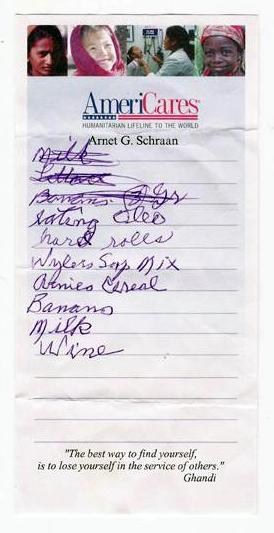 AmeriCares
HUMANITARIAN LIFELINE TO THE WORLD
Arnet G. Schraan
Milk
Lettuce
Banans
Oleo
hard rolls
Wylers Sop Mix
Cereal
Banano
Milk
Wine
"The best way to find yourself,
is to lose yourself in the service of others."
Ghandi